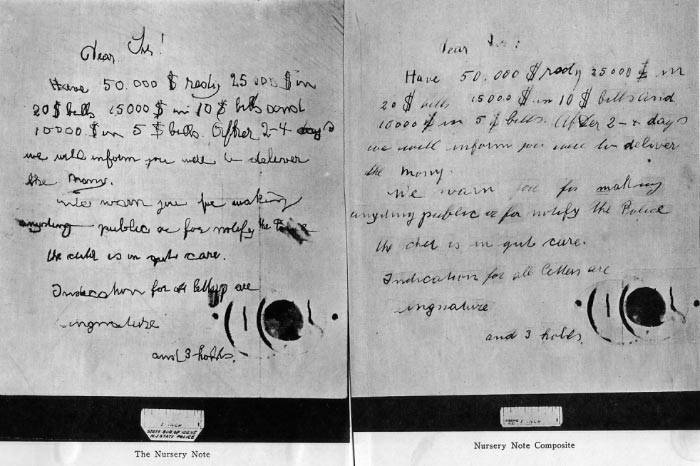 Dear Sir!
Have 50.000 $ redy 25000 $ in
20 $ bills 15000 $ in 10 $ bills and
10000 $ in 5 $ bills. After 2-4 days
we will inform you were to deliver
the Mony.
We warn you for making
anyding public or for notify the Police
the child is in gut care.
Indication for all letters are
singnature
and 3 holds.
1 INCH
STATE BUR. OF IDENT.
N.J. STATE POLICE
The Nursery Note
Dear Sir!
Have 50.000 $ redy 25000 $ in
20 $ bills 15000 $ in 10 $ bills and
10000 $ in 5 $ bills. After 2-4 days
we will inform you were to deliver
the Mony.
We warn you for making
anyding public or for notify the Police
the child is in gut care.
Indication for all letters are
singnature
and 3 holds.
1 INCH
Nursery Note Composite